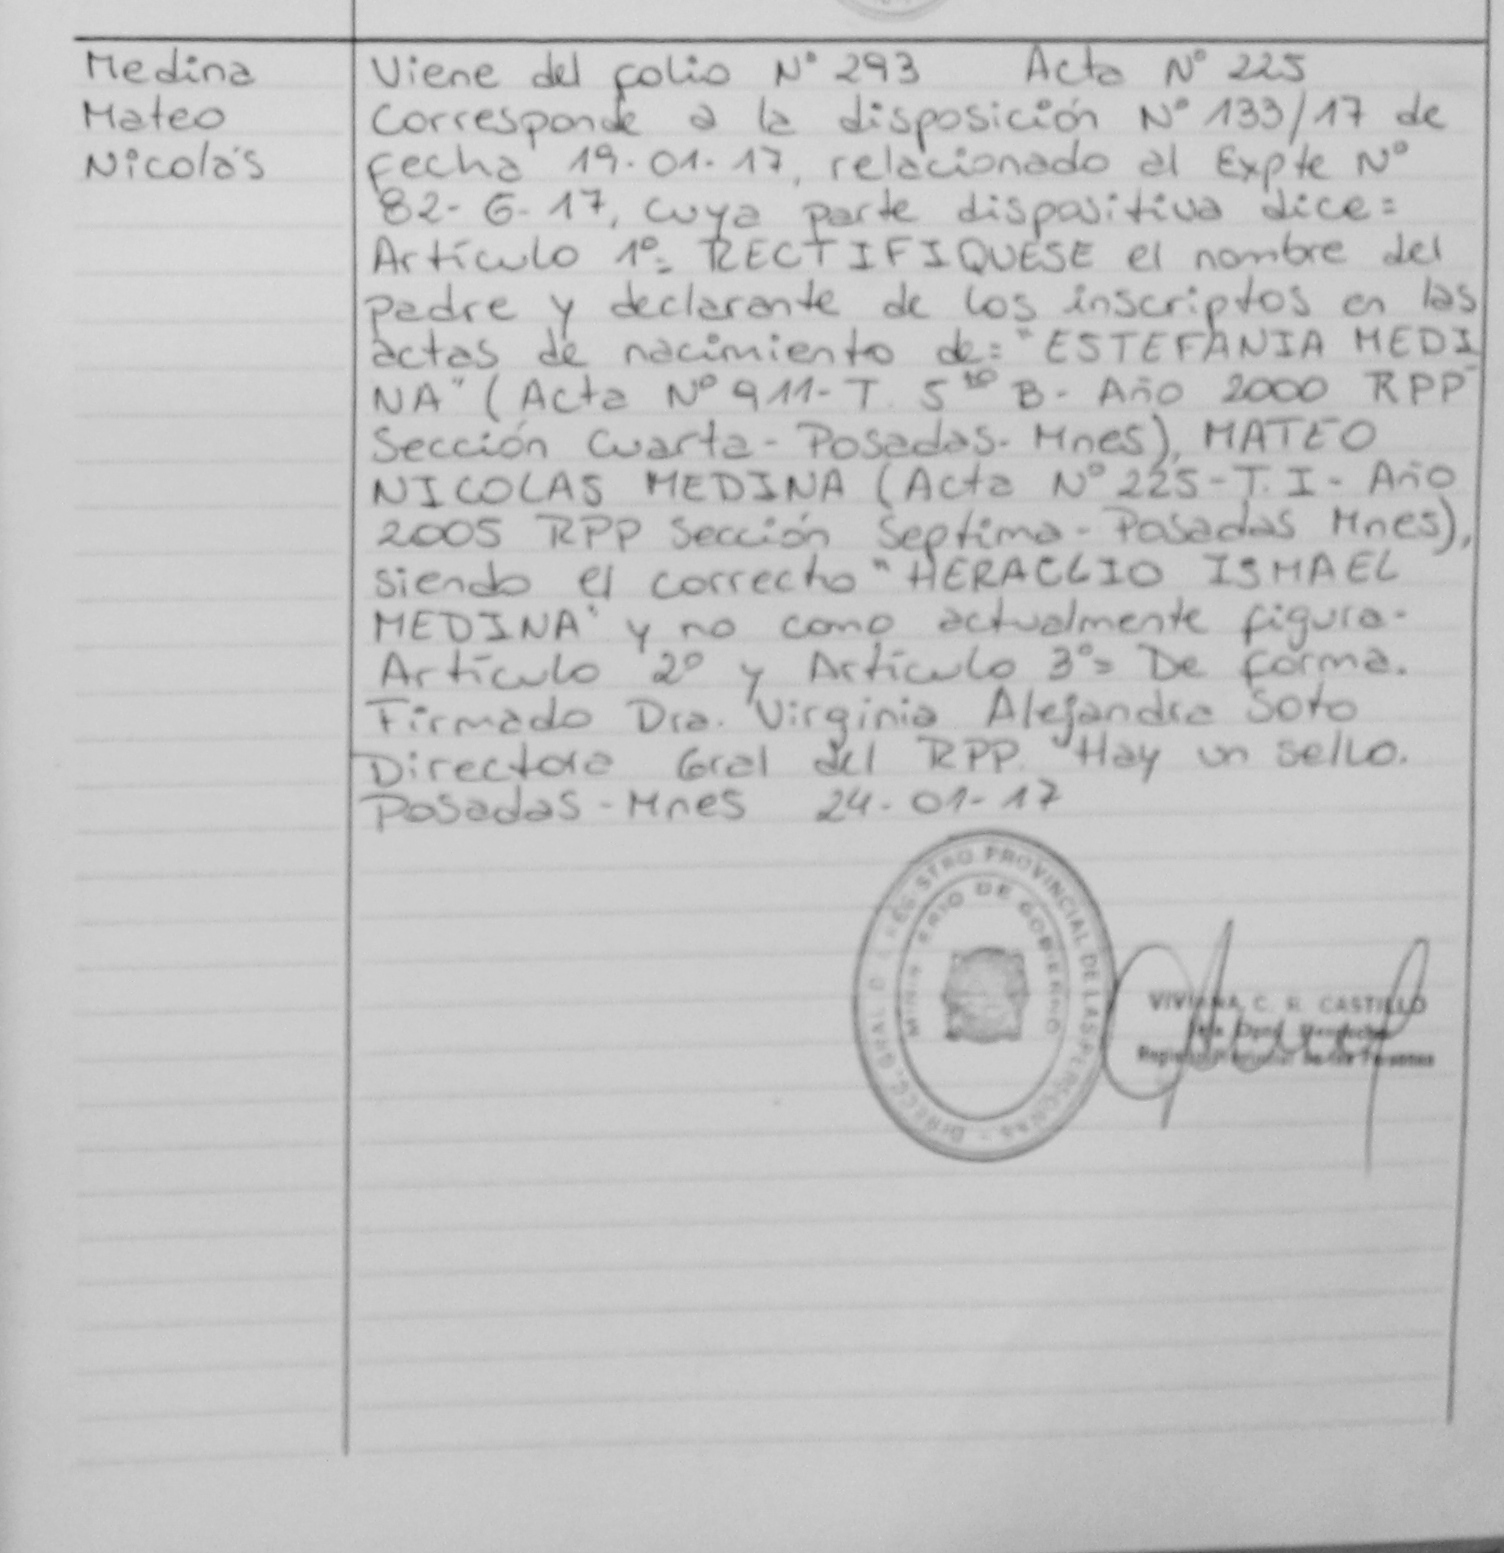 Medina
Mateo
Nicolás
Viene del folio Nº 293 Acta Nº 225
Corresponde a la disposición Nº 133/17 de
fecha 19-01-17, relacionado al Expte Nº
82-G-17, cuya parte dispositiva dice=
Artículo 1º= RECTIFIQUESE el nombre del
padre y declarante de los inscriptos en las
actas de nacimiento de= "ESTEFANIA MEDI
NA" (Acta Nº 911-T. 5to B- Año 2000 RPP
Sección Cuarta-Posadas-Mnes), MATEO
NICOLAS MEDINA (Acta Nº 225-T.I- Año
2005 RPP Sección Septima-Posadas Mnes),
siendo el correcto "HERACLIO ISMAEL
MEDINA" y no como actualmente figura-
Artículo 2º y Artículo 3º= De forma.
Firmado Dra. Virginia Alejandra Soto
Directora Gral del RPP. Hay un sello.
Posadas-Mnes 24-01-17
DIRECC. GRAL. D REGISTRO PROVINCIAL DE LAS PERSONAS
MINISTERIO DE GOBIERNO
VIVIANA C. R. CASTILLO
Registro Provincial de las Personas